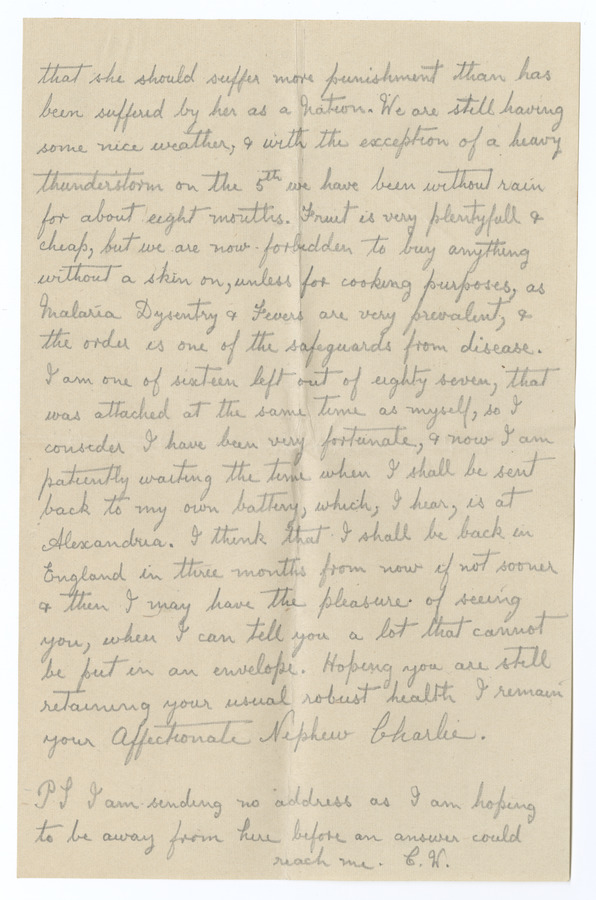 that she should suffer more punishment than has
been suffered by her as a Nation. We are still having
some nice weather, & with the exception of a heavy
thunderstorm on the 5th we have been without rain
for about eight months. Fruit is very plentyfull &
cheap, but we are now forbidden to buy anything
without a skin on, unless for cooking purposes, as
Malaria Dysentry & Fevers are very prevalent, &
the order is one of the safeguards from disease.
I am one of sixteen left out of eighty seven, that
was attached at the same time as myself, so I
consider I have been very fortunate, & now I am
patiently waiting the time when I shall be sent
back to my own battery, which, I hear, is at
Alexandria. I think that I shall be back in
England in three months from now if not sooner
& then I may have the pleasure of seeing
you, when I can tell you a lot that cannot
be put in an envelope. Hoping you are still
retaining your usual robust health I remain
your Affectionate Nephew Charlie.
PS I am sending no address as I am hoping
to be away from here before an answer could
reach me. C.W.